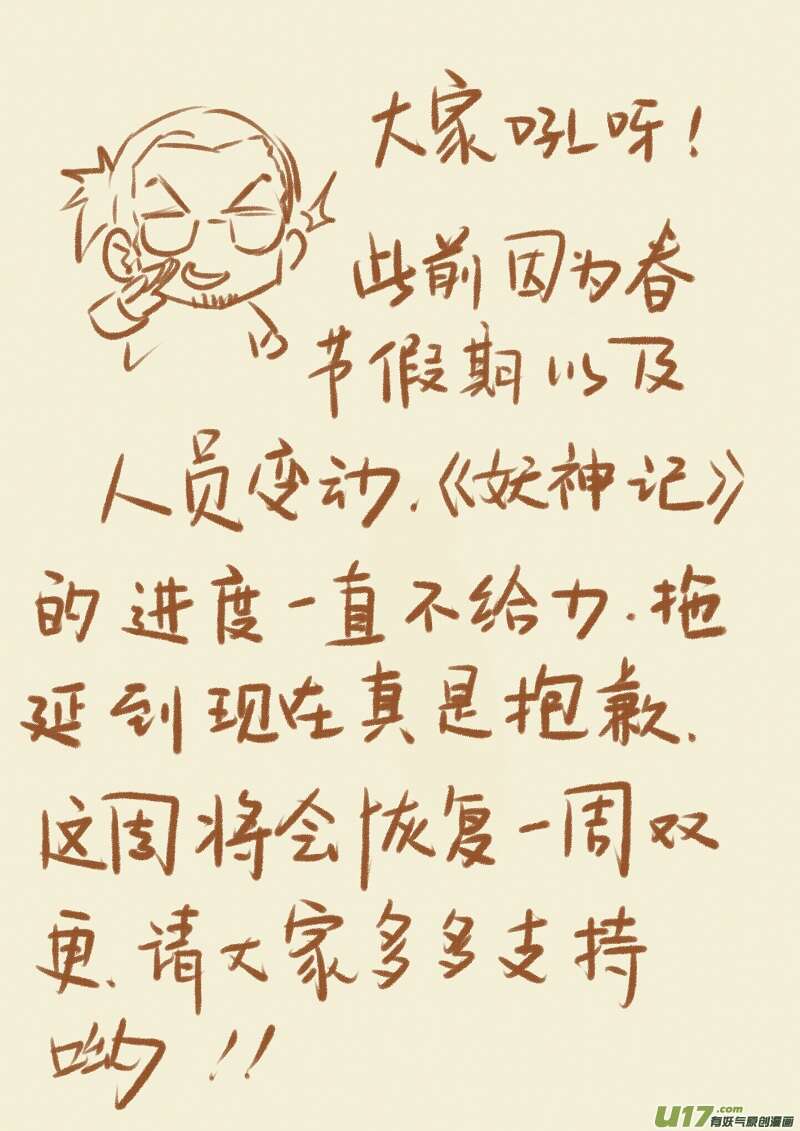 大家吼呀!
此前因为春
节假期以及
人员变动.《妖神记》
的进度一直不给力.拖
延到现在真是抱歉.
这周将会恢复一周双
更.请大家多多支持
呦!!
U17.com
有妖气原创漫画